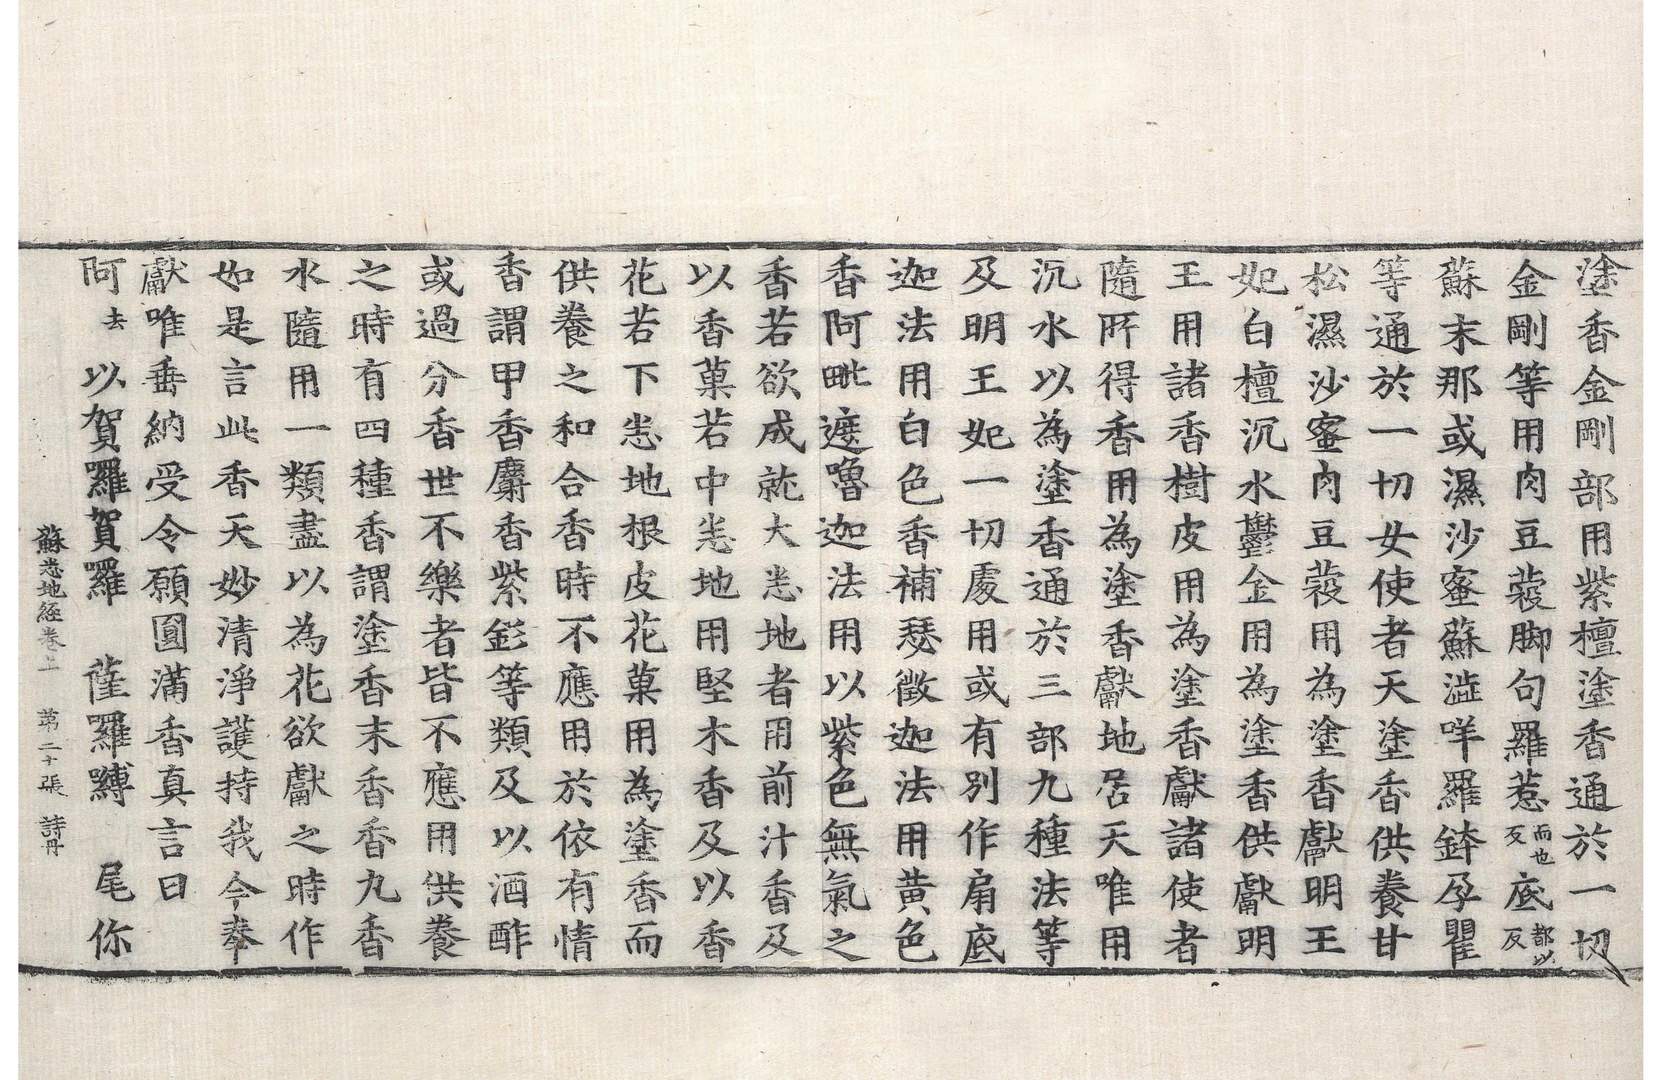 塗香金剛部用紫檀塗香通於一切
金剛等用肉豆蔲脚句羅惹而也反底都以反
蘇末那或濕沙蜜蘇澁咩羅鉢孕瞿
等通於一切女使者天塗香供養甘
松濕沙蜜肉豆蔲用為塗香獻明王
妃白檀沉水鬱金用為塗香供獻明
王用諸香樹皮用為塗香獻諸使者
隨所得香用為塗香獻地居天唯用
沉水以為塗香通於三部九種法等
及明王妃一切處用或有別作扇底
迦法用白色香補瑟徵迦法用黃色
香阿毗遮嚕迦法用以紫色無氣之
香若欲成就大悉地者用前汁香及
以香菓若中悉地用堅木香及以香
花若下悉地根皮花菓用為塗香而
供養之和合香時不應用於依有情
香謂甲香麝香紫鉚等類及以酒酢
或過分香世不樂者皆不應用供養
之時有四種香謂塗香末香香丸香
水隨用一類盡以為花欲獻之時作
如是言此香天妙清淨護持我今奉
獻唯垂納受令願圓滿香真言曰
阿去以賀囉賀囉 薩囉嚩 尾你
蘇悉地經卷上 第二十張 詩丹